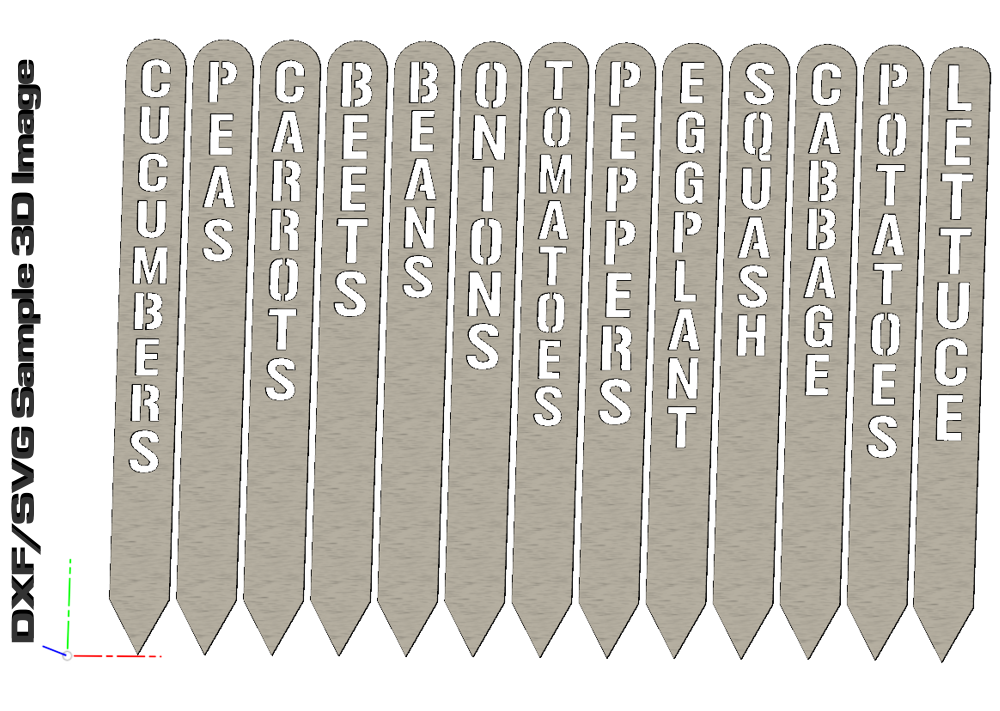 DXF/SVG Sample 3D Image
CUCUMBERS
PEAS
CARROTS
BEETS
BEANS
ONIONS
TOMATOES
PEPPERS
EGGPLANT
SQUASH
CABBAGE
POTATOES
LETTUCE